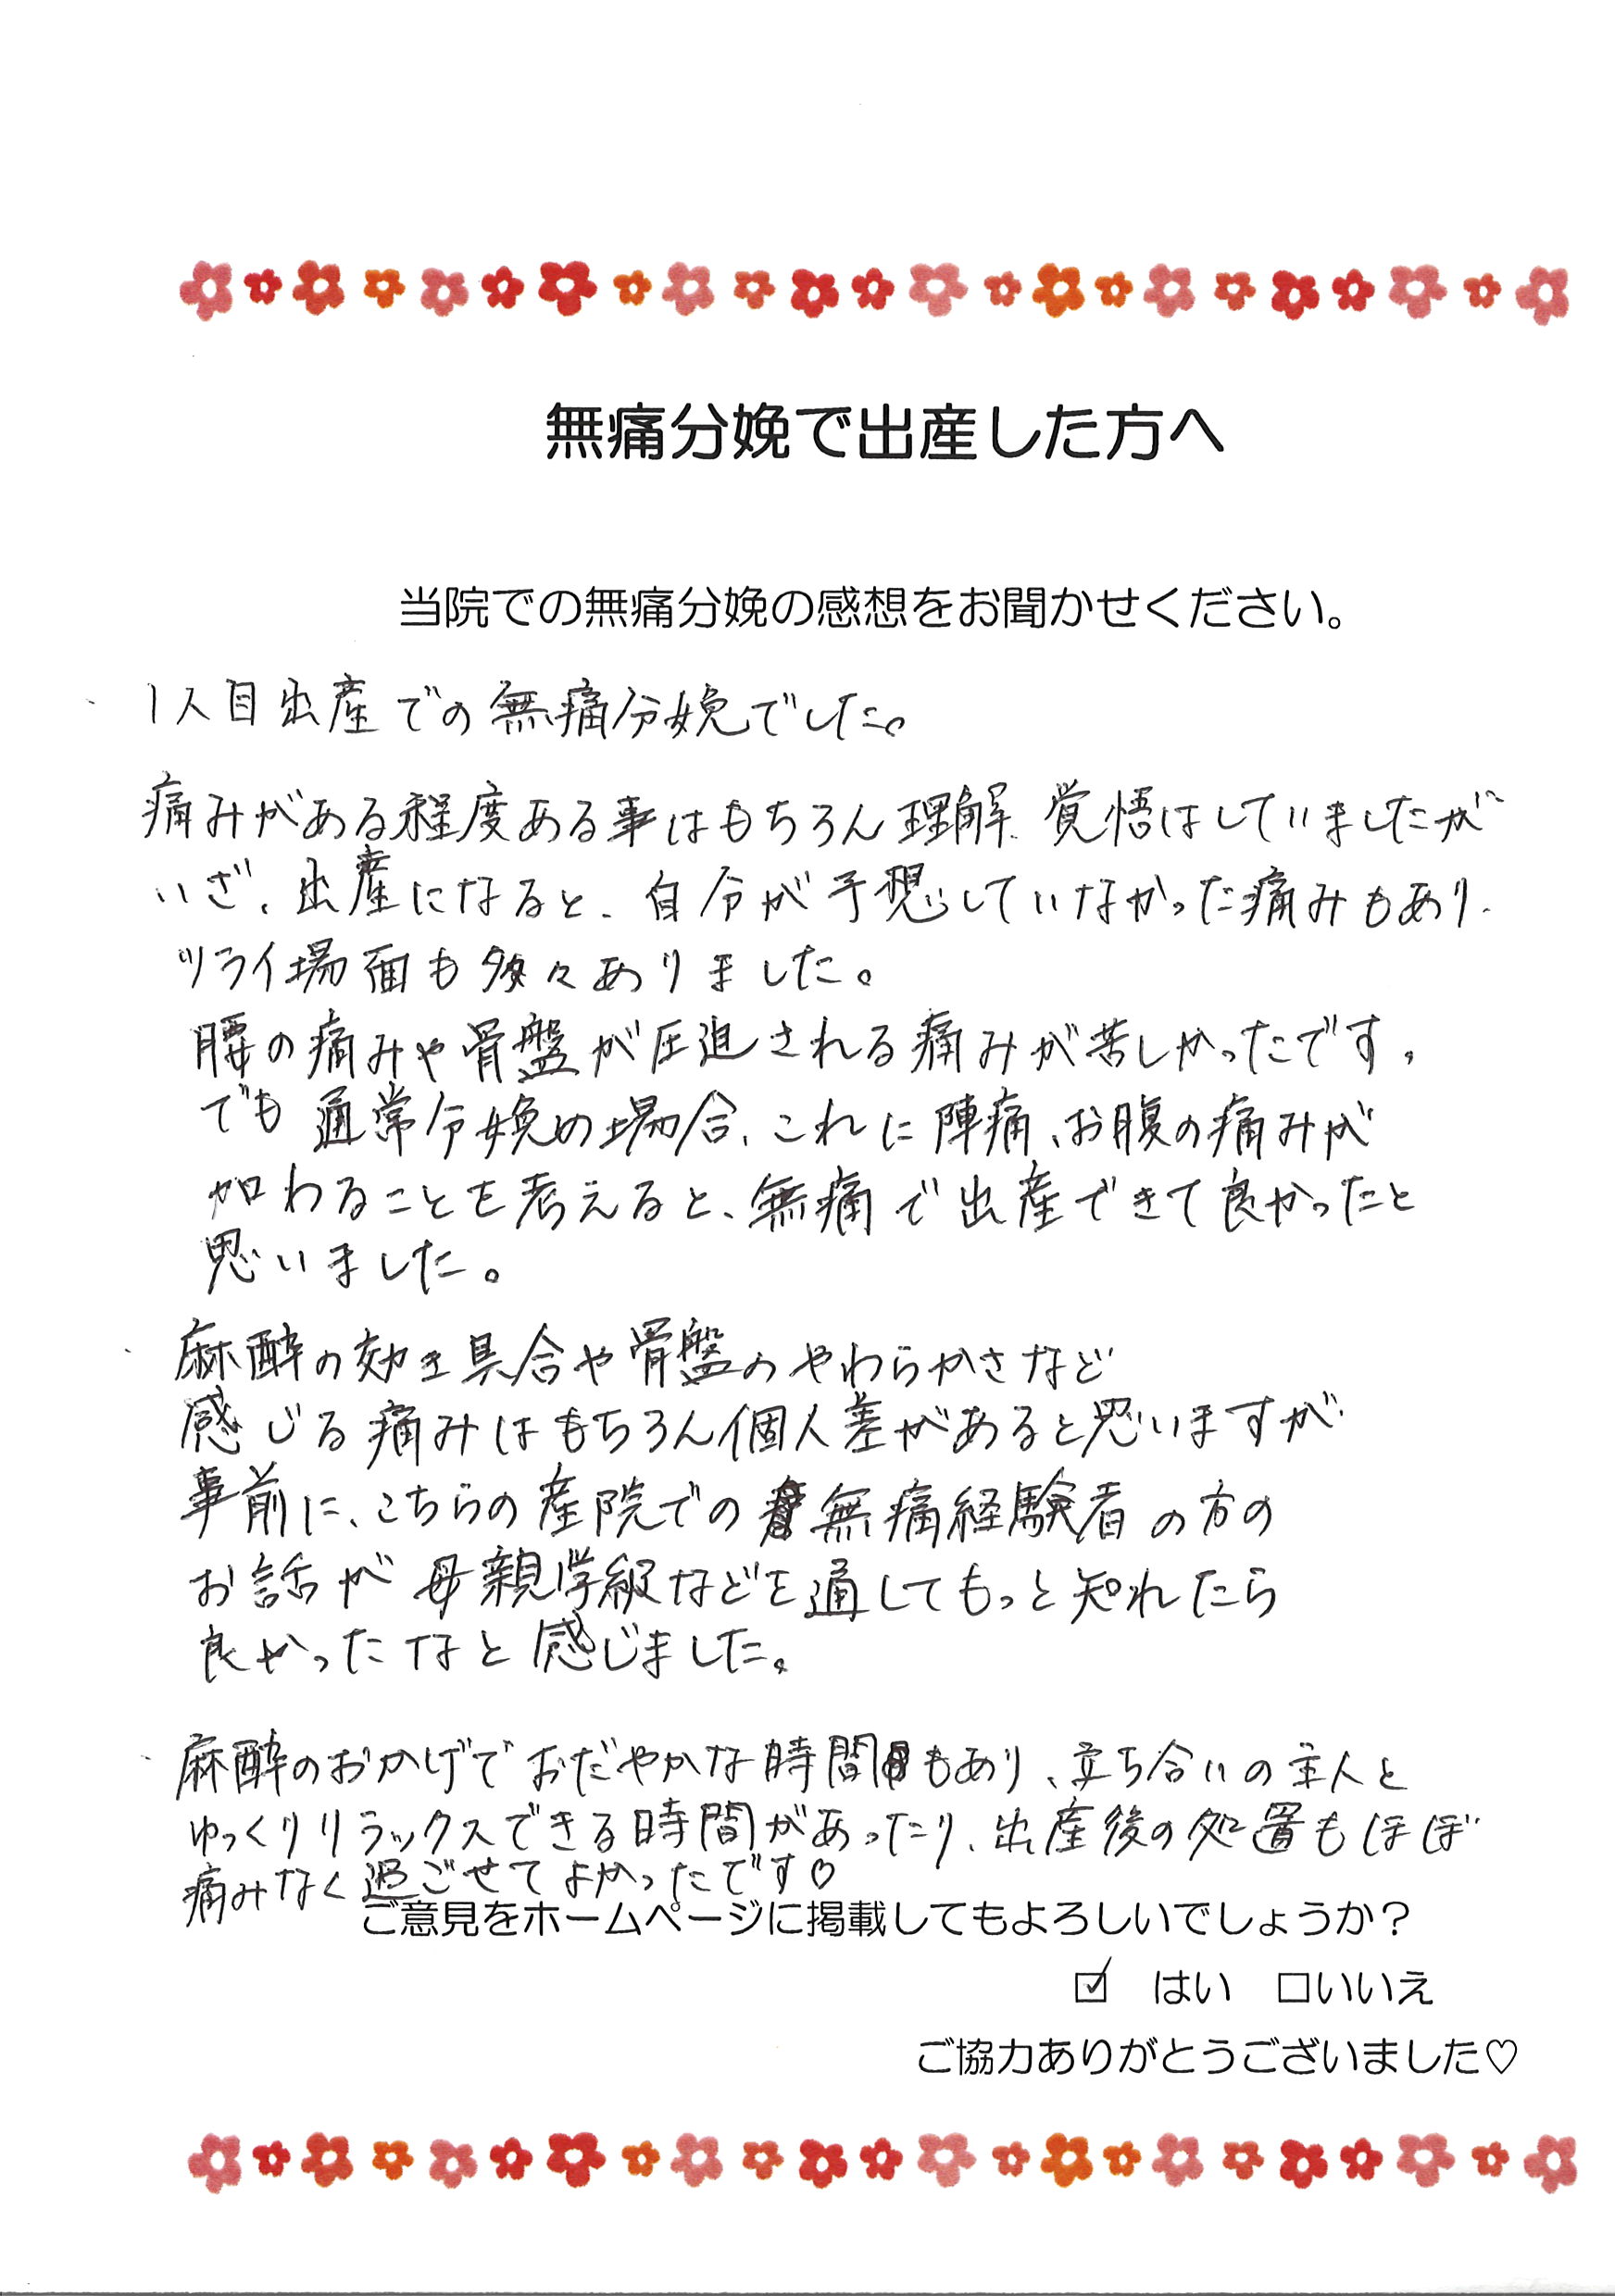 無痛分娩で出産した方へ
当院での無痛分娩の感想をお聞かせください。
1人目出産での無痛分娩でした。
痛みがある程度ある事はもちろん理解、覚悟はしていましたが
いざ、出産になると、自分が予想していなかった痛みもあり、
ツライ場面も多々ありました。
腰の痛みや骨盤が圧迫される痛みが苦しかったです。
でも通常分娩の場合、これに陣痛、お腹の痛みが
加わることを考えると、無痛で出産できて良かったと
思いました。
麻酔の効き具合や骨盤のやわらかさなど
感じる痛みはもちろん個人差があると思いますが
事前に、こちらの産院での無痛経験者の方の
お話が母親学級などを通してもっと知れたら
良かったなと感じました。
麻酔のおかげでおだやかな時間もあり、立ち合いの主人と
ゆっくりリラックスできる時間があったり、出産後の処置もほぼ
痛みなく過ごせてよかったです♡
ご意見をホームページに掲載してもよろしいでしょうか？
☑ はい □いいえ
ご協力ありがとうございました♡